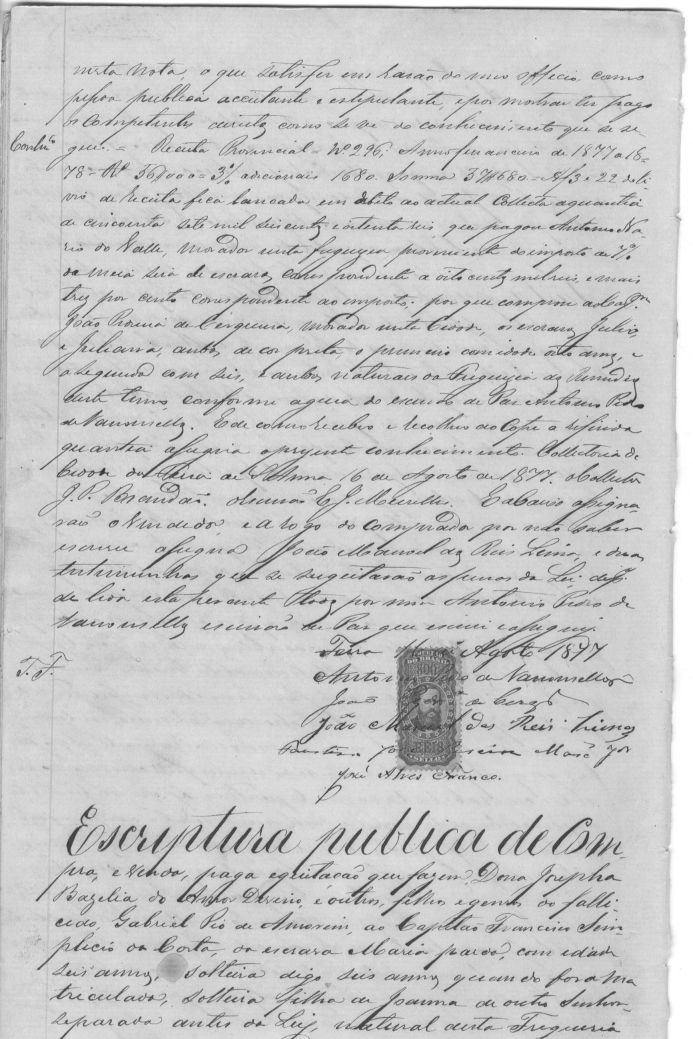 nesta Nota, o que satisfiz em razão do meu officio como
pessoa publica acceitante e estipulante, e por mostrar ter pago
os competentes direitos como se ve do conhecimento que se se-
gue. = Receita Provincial = Nº 296. Anno financeiro de 1877 a 18-
78 = Rs 36000 = 3% addicionais 1680. Somma 371680 = Af 3 e 22 do li-
vro de Receita fica lançada em debito ao actual Collector a quantia
de cincoenta sete mil seis centos e oitenta reis, que pagou Antonio
do Valle, morador nesta freguezia proveniente do imposto de 7%
da meia siza de escravos correspondente a oito centos mil reis, e mais
trez por cento correspondente ao imposto. por que comprou
João Pereira de Cerqueira, morador nesta Cidade, os escravos Julio,
e Juliana, ambos de cor preta o primeiro com idade oito annos, e
a segunda com seis, e ambos naturais da Freguezia dos Remedios
deste termo, conforme a guia do escrivão de Paz Antonio Pedro
de Vasconsellos. E de como recebeu e recolheu ao Cofre a referida
quantia assigna o presente conhecimento. Collectoria da
Cidade da Feira de S. Anna, 16 de Agosto de 1877. o Collector
J. P. Brandão. o Escrivão C. J. Meirelles. E abaixo assigna
rão o Vendedor, e a rogo do Comprador por não saber
escrever assigna João Manoel dos Reis Lima, e duas
testimunhas que se sugeitarão as penas da Lei, de
de lida esta perante elles, por mim Antonio Pedro de
Vasconsellos escrivão de Paz que escrevi e assignei
T. F.
Feira Agosto 1877
Antonio de Vasconsellos
João de Cerqª
João Manoel dos Reis Lima
José Alves Franco.
200
REIS
Escriptura publica de Com-
pra, e Venda, paga e quitação que fazem, Dona Josepha
Bazelia do Amor Divino, e outros, filhos e genros do falle-
cido, Gabriel Pio de Amorim, ao Capitão Francisco Sim-
plicio da Costa, da escrava Maria parda, com idade
seis annos, solteira digo seis annos quando fora ma
triculada, solteira filha de Joanna de outro Senhor
separada antes da Lei, natural desta Freguezia